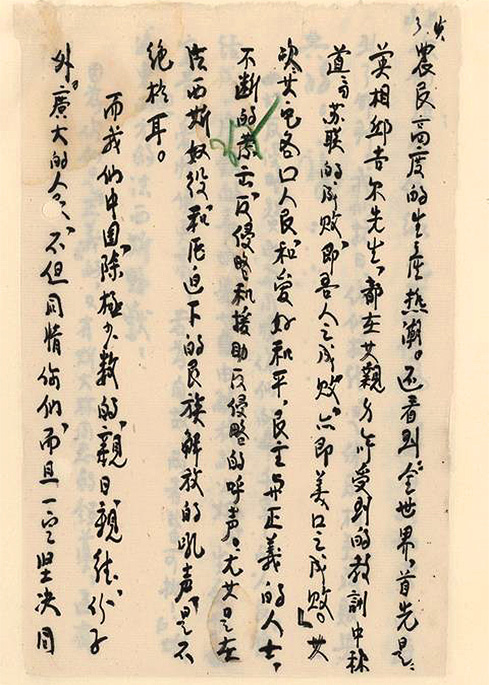 农民高度的生产热潮。还看到全世界,首先是:
英相邱吉尔先生,都在其亲身所受到的教训中称
道:“苏联的成败,即吾人之成败,亦即美国之成败。”其
次其它各国人民和爱好和平,民主与正义的人士,
不断的 反侵略和援助反侵略的呼声。尤其是在
法西斯奴役和压迫下的民族解放的吼声,是不
绝于耳。
而我们中国,除极少数的,亲日亲德份子
外。广大的人民,不但同情你们,而且一定坚决同